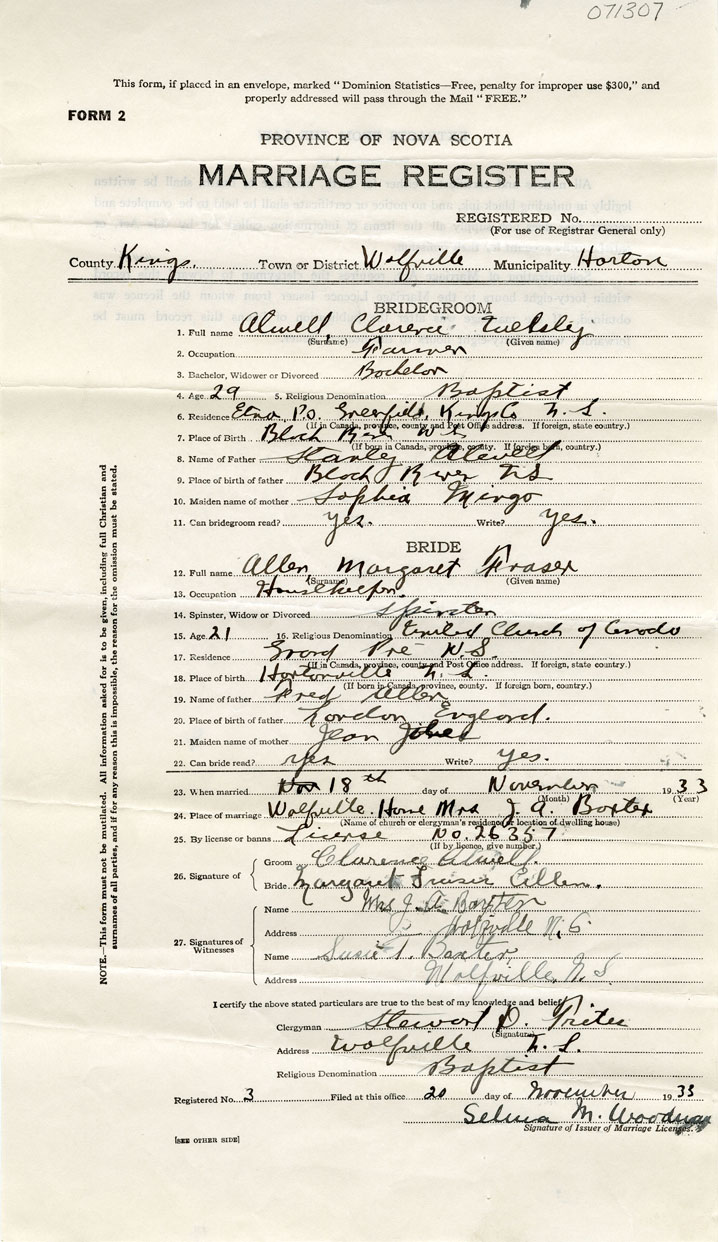 071307
This form, if placed in an envelope, marked "Dominion Statistics—Free, penalty for improper use $300," and
properly addressed will pass through the Mail "FREE."
FORM 2
PROVINCE OF NOVA SCOTIA
MARRIAGE REGISTER
REGISTERED No.
(For use of Registrar General only)
County Kings. Town or District Wolfville Municipality Horton
BRIDEGROOM
1. Full name Atwell, Clarence
(Surname) (Given name)
2. Occupation Farmer
3. Bachelor, Widower or Divorced Bachelor
4. Age 29 5. Religious Denomination Baptist
6. Residence P.O. Greenfield, Kings Co N.S.
(If in Canada, province, county and Post Office address. If foreign, state country.)
7. Place of Birth Black River N S
(If born in Canada, province, county. If foreign born, country.)
8. Name of Father Stanley Atwell
9. Place of birth of father Black River N S
10. Maiden name of mother Sophia Mingo
11. Can bridegroom read? Yes. Write? Yes.
BRIDE
12. Full name Allen, Margaret Fraser
(Surname) (Given name)
13. Occupation Housekeeper.
14. Spinster, Widow or Divorced Spinster
15. Age 21 16. Religious Denomination United Church of Canada
17. Residence Grand Pre N.S.
(If in Canada, province, county and Post Office address. If foreign, state country.)
18. Place of birth Hortonville N. S.
(If born in Canada, province, county. If foreign born, country.)
19. Name of father Fred Allen
20. Place of birth of father London England.
21. Maiden name of mother Jean
22. Can bride read? Yes Write? Yes.
23. When married Nov 18th day of November 1933
(Month) (Year)
24. Place of marriage Wolfville. Home Mrs J. A. Baxter
(Name of church or clergyman's residence or location of dwelling house)
25. By license or banns License No. 26357
(If by licence, give number.)
26. Signature of Groom Clarence Atwell.
Bride Margaret Fraser Allen.
27. Signatures of Witnesses Name Mrs J. A. Baxter
Address Wolfville N.S.
Name Susie T. Baxter
Address Wolfville, N.S.
I certify the above stated particulars are true to the best of my knowledge and belief.
Clergyman Stewart D. Trites
(Signature)
Address Wolfville N. S.
Religious Denomination Baptist
Registered No. 3 Filed at this office 20 day of November 1933
Selina M. Woodman
Signature of Issuer of Marriage Licenses.
[SEE OTHER SIDE]
NOTE.—This form must not be mutilated. All information asked for is to be given, including full Christian and
surnames of all parties, and if for any reason this is impossible, the reason for the omission must be stated.